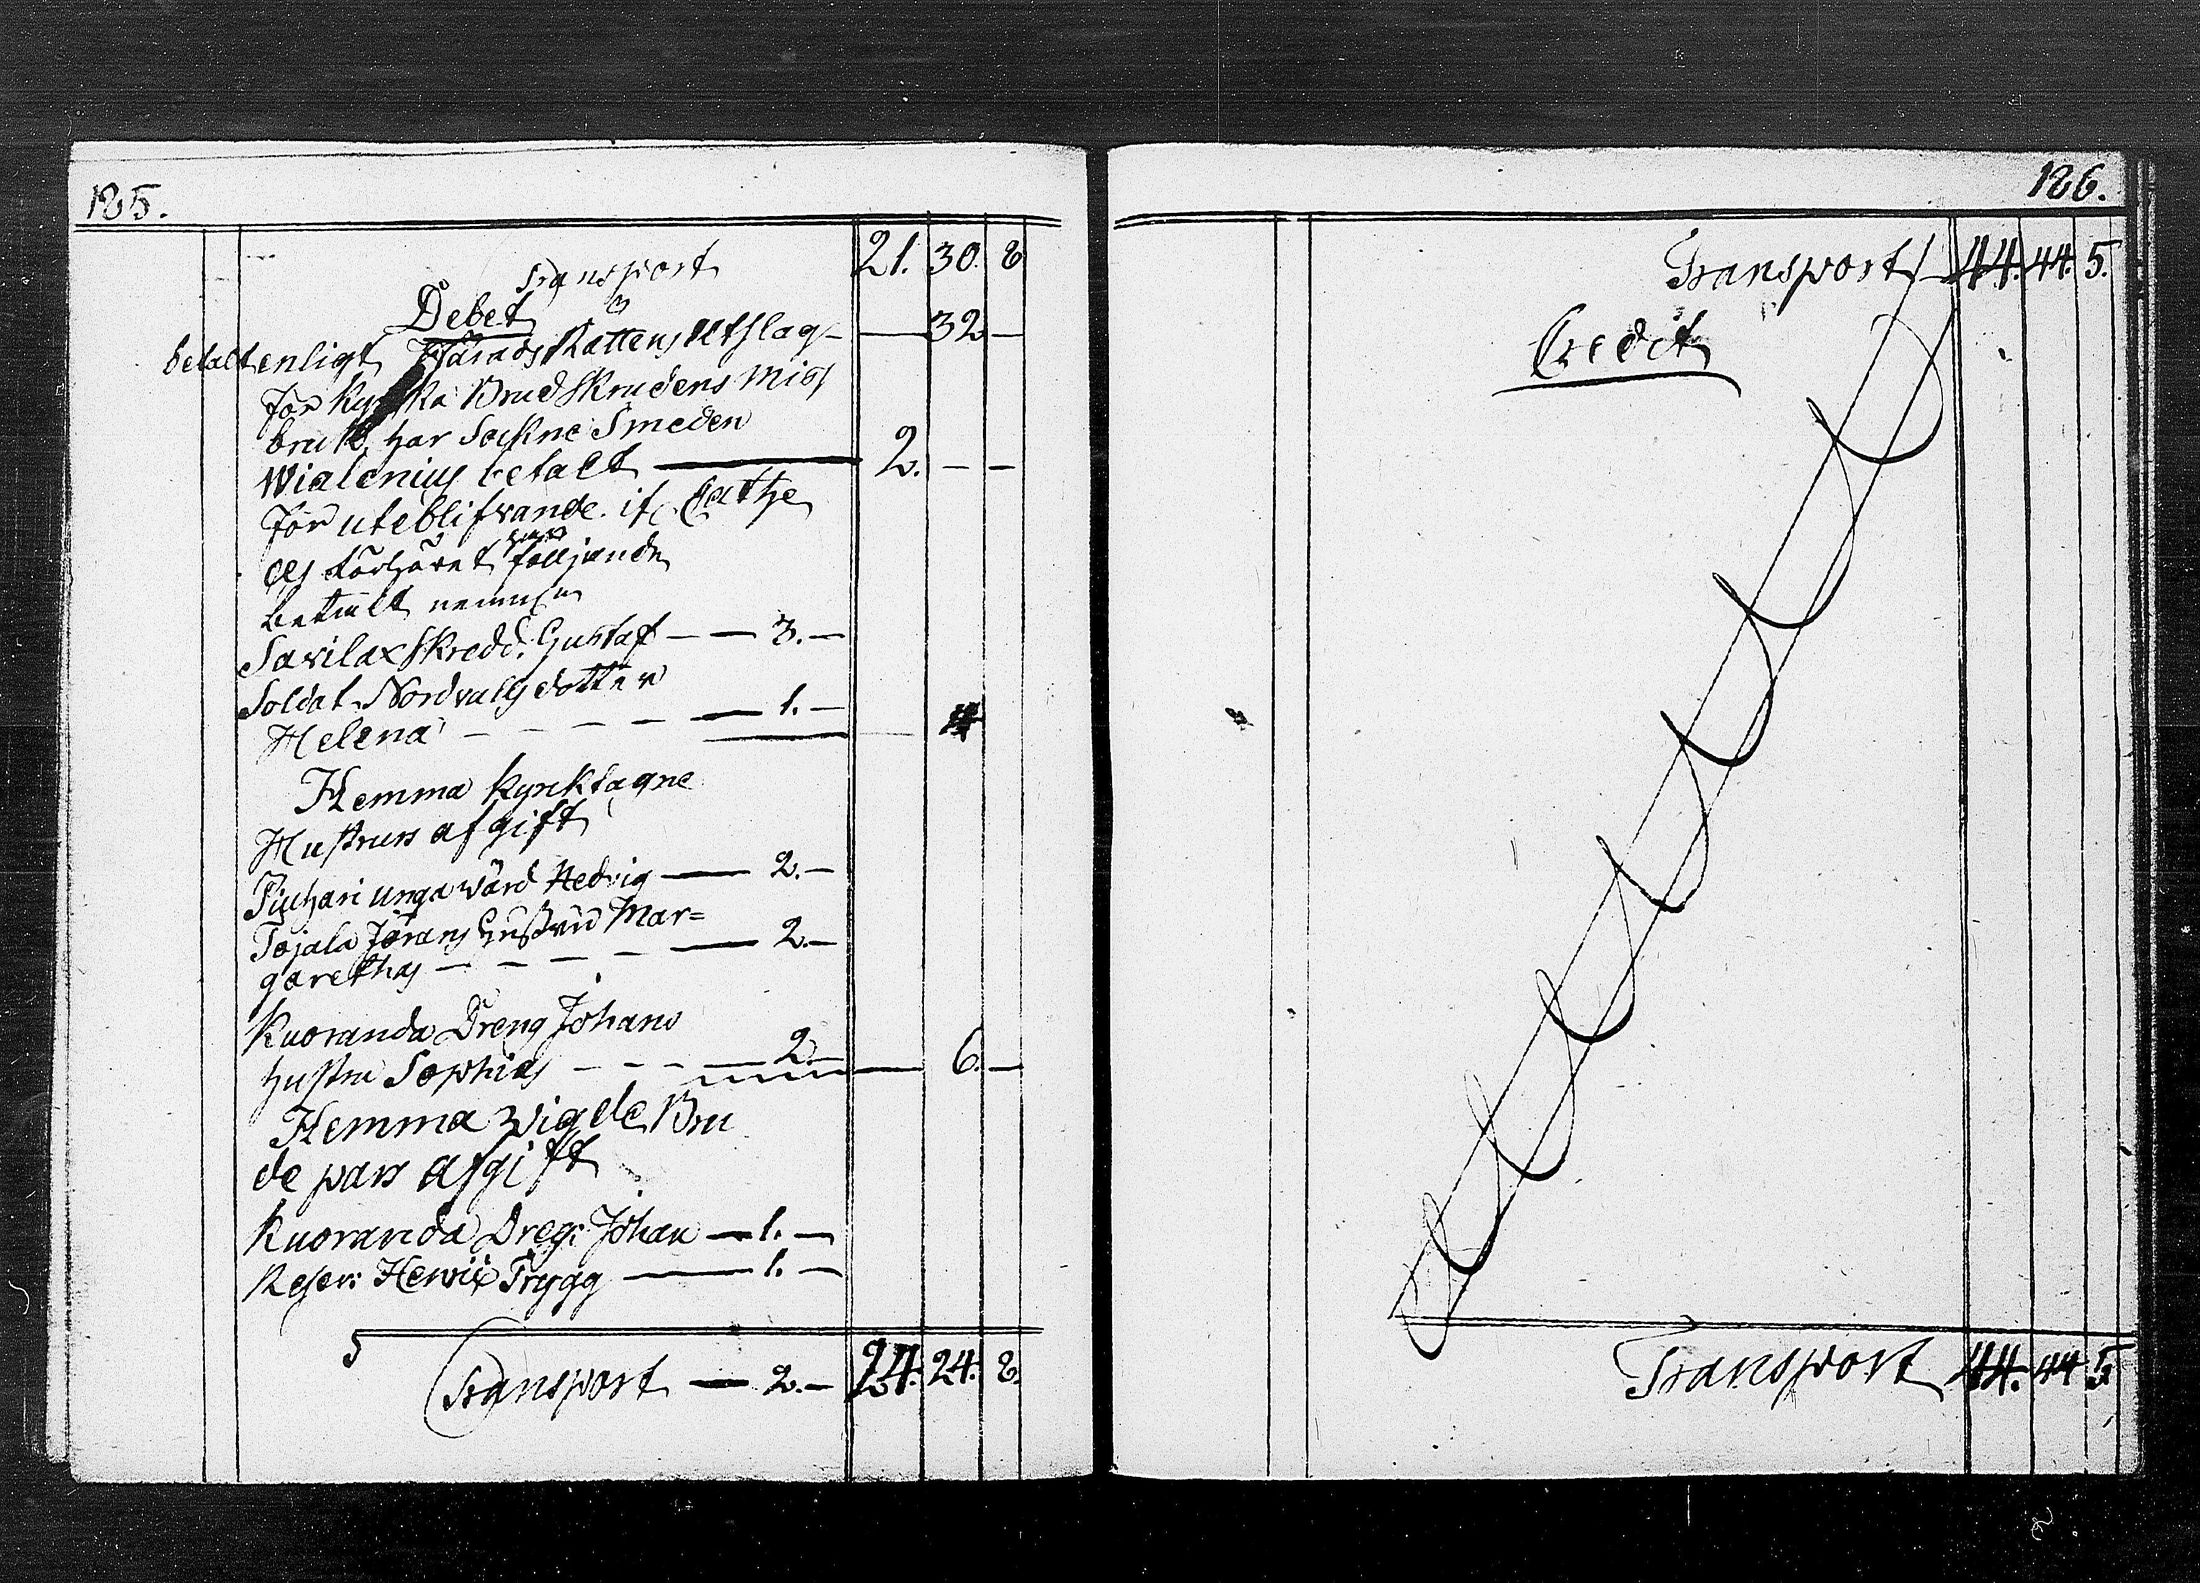 125.
Transport 21. 30. 8
Debet
betalt enligt Härads Rättens Utslag — 32 —
för kyska Brudskrudens miss
bruk, har Sockne Smeden
Wialenius betalt — 2. — —
för uteblifvande if. Cathe
förhöret följande
betalt
Savilax Skredd. Gustaf — — 3. —
Soldat Nordvalls dotter
Helena — — — — 1. — 4
Hemma kyrktagne
Hustrurs afgift
unga värd Hedvig — 2. —
Tojala Jörans hustru Mar=
garethas — — — — — 2. —
Kuoranda Dreng Johans
hustru Sophias — — — — 2. — — 6. —
Hemma vigde Bru
de pars afgift
Kuoranda Dreg: Johan — 1. —
Reser: Trygg — 1. —
Transport — 2. — 24. 24. 8.
126.
Transport 44. 44. 5.
Credit
Transport 44. 44 5